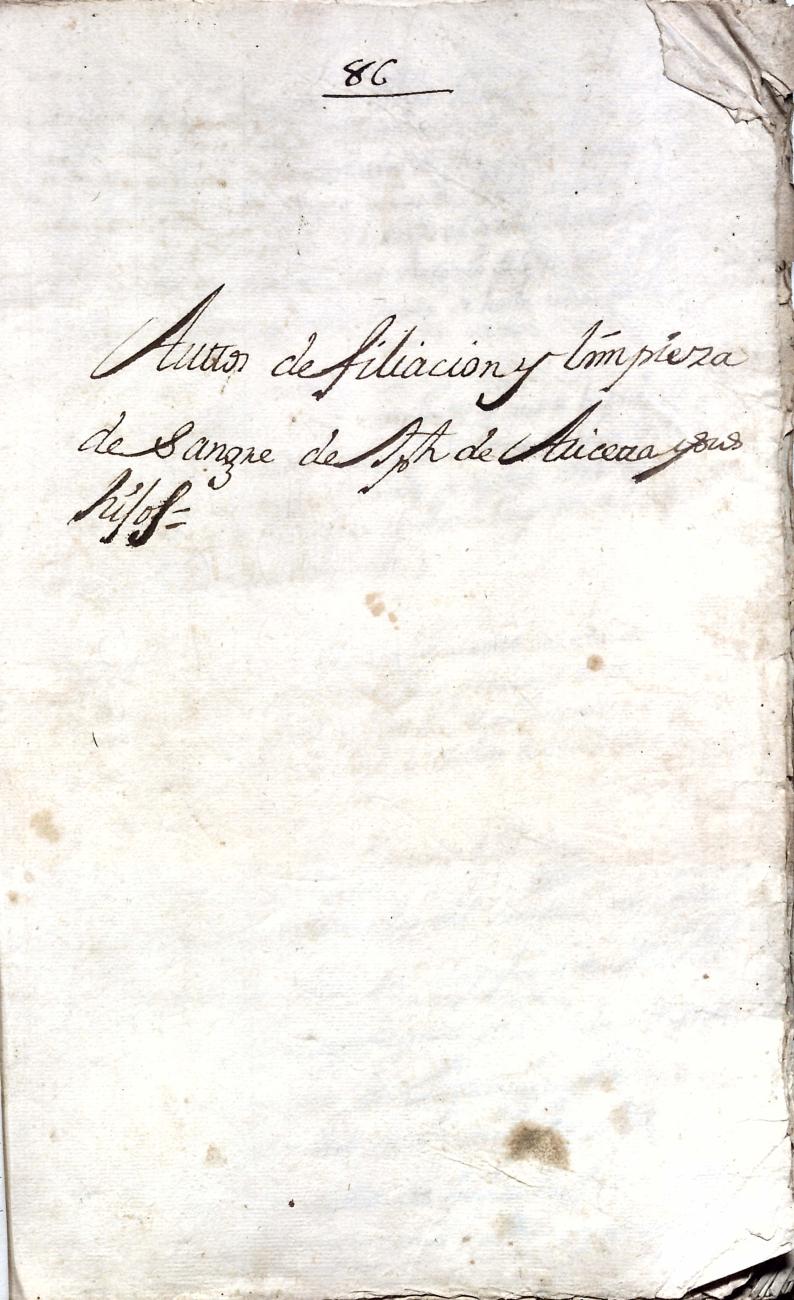 86
Auttos de filiacion y limpieza
de Sangre de Jph de Aricera y sus
hijos=